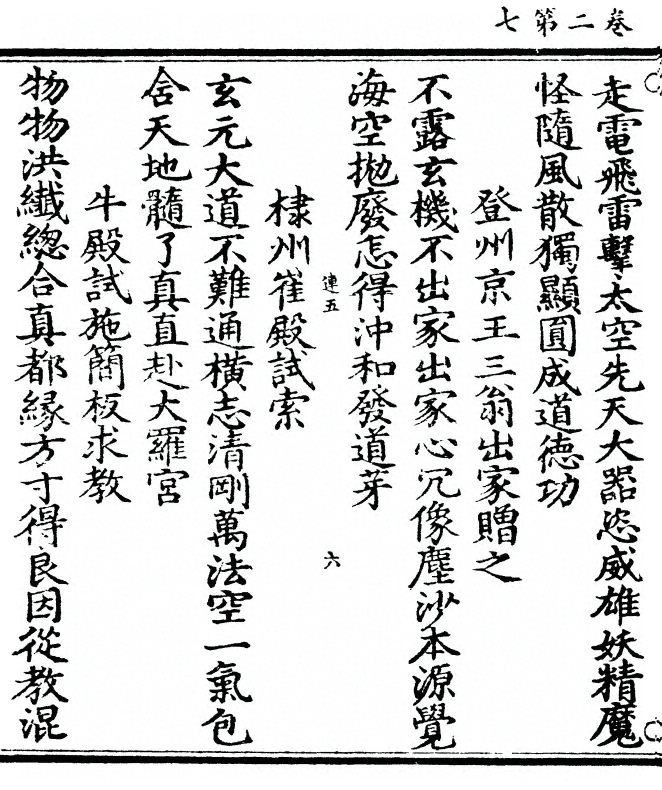 七第二卷
走電飛雷擊太空先天大器恣威雄妖精魔
怪隨風散獨顯圓成道德功
登州京王三翁出家贈之
不露玄機不出家出家心冗像塵沙本源覺
海空拋廢怎得沖和發道芽
連五
六
棣州崔殿試索
玄元大道不難通橫志清剛萬法空一氣包
含天地髓了真直赴大羅宮
牛殿試施簡板求教
物物洪纖總合真都緣方寸得良因從教混